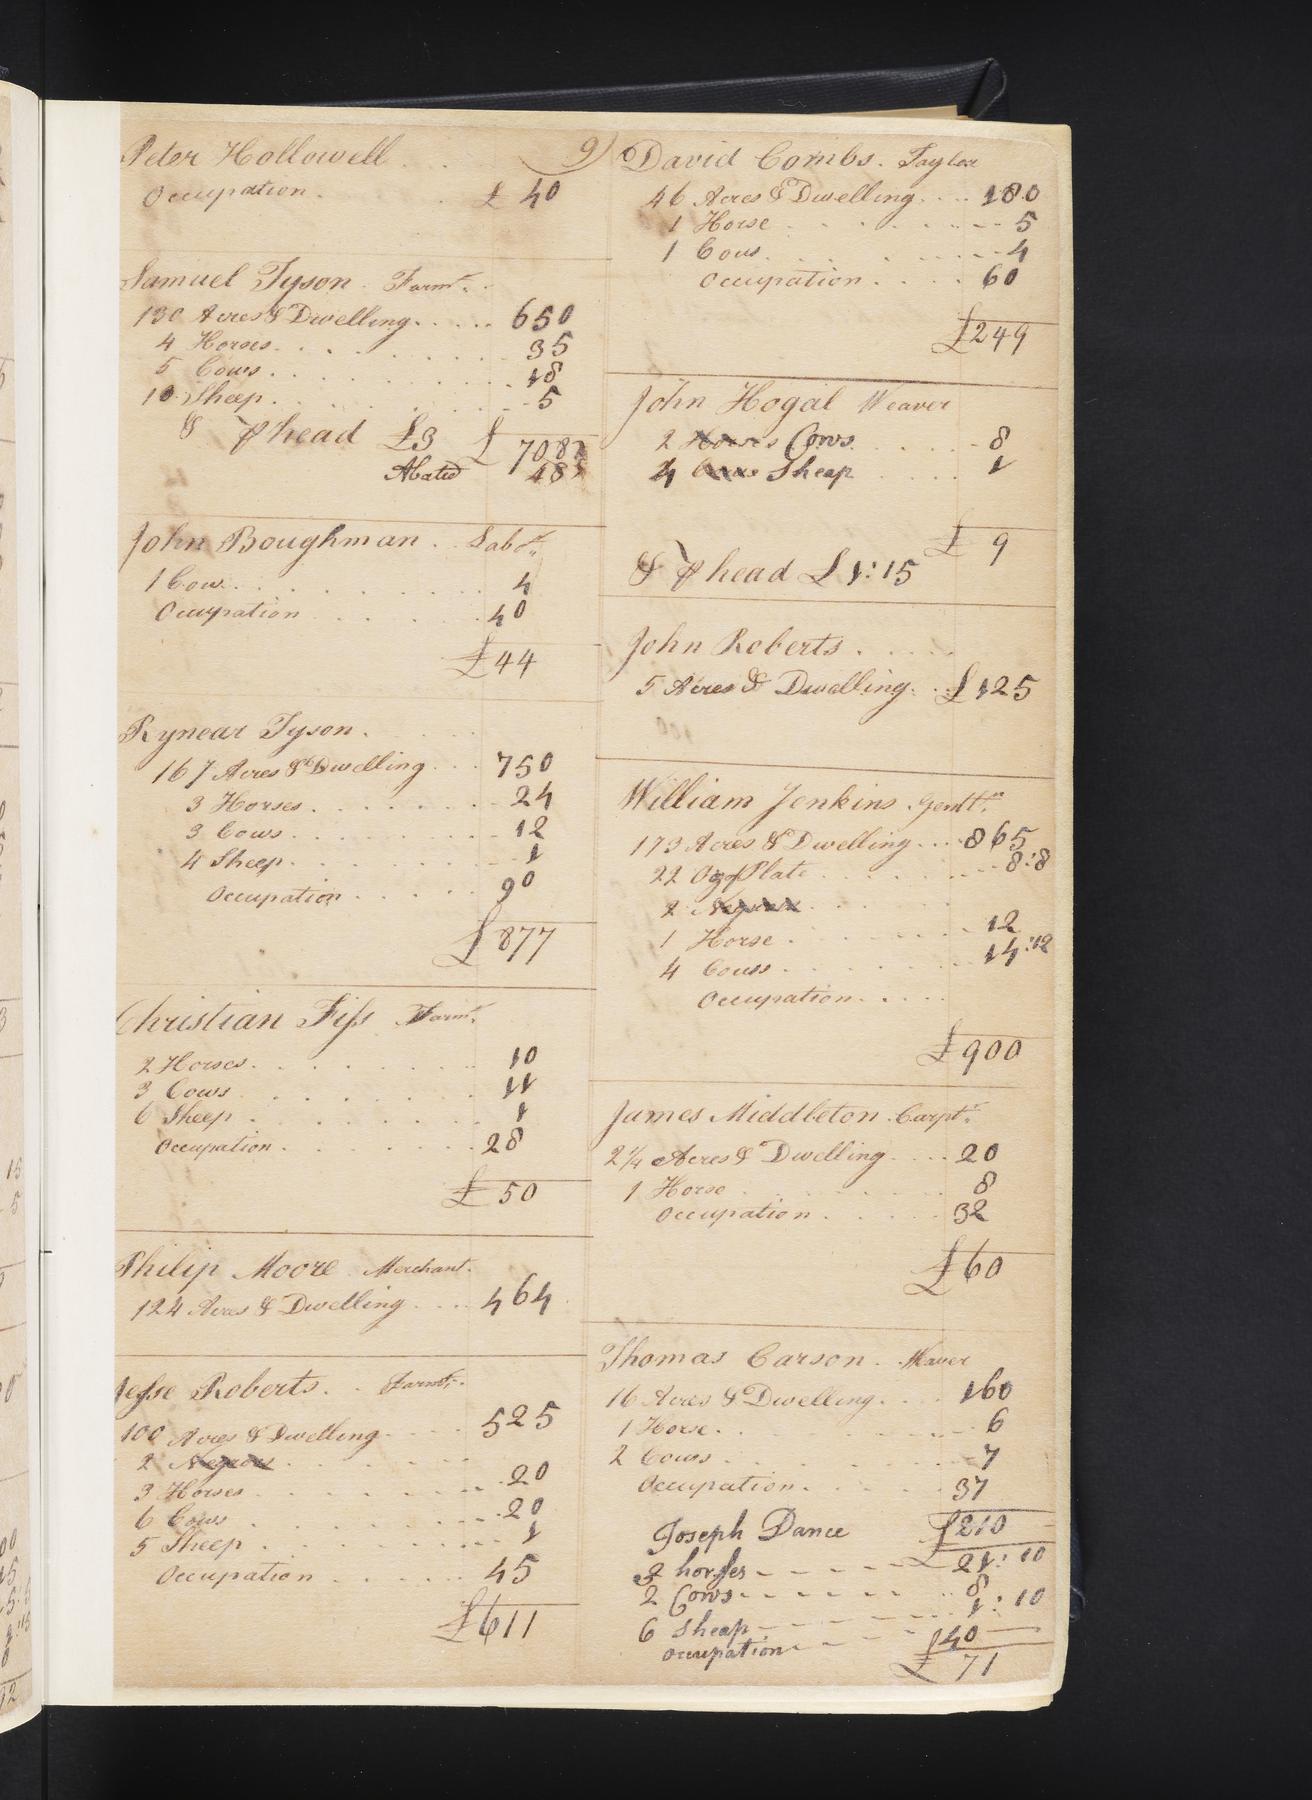 9)
Peter Hollowell
Occupation £ 40
Samuel Tyson Farmr.
130 Acres & Dwelling 650
4 Horses 35
5 Cows 18
10 Sheep 5
& ⅌ head £3 £ 708
Abated 48
John Boughman Labr.
1 Cow 4
Occupation 40
£44
Rynear Tyson
167 Acres & Dwelling 750
3 Horses 24
3 Cows 12
4 Sheep 1
Occupation 90
£877
Christian Fiss Farmr.
2 Horses 10
3 Cows 11
6 Sheep 1
Occupation 28
£50
Philip Moore Merchant
124 Acres & Dwelling 464
Jesse Roberts Farmr.
100 Acres & Dwelling 525
2 Negroes
3 Horses 20
6 Cows 20
5 Sheep 1
Occupation 45
£611
David Combs. Taylor
46 Acres & Dwelling 180
1 Horse 5
1 Cow 4
Occupation 60
£249
John Hogal Weaver
2 Horses Cows 8
4 Cows Sheep 1
£ 9
& ⅌ head £ 1:15
John Roberts
5 Acres & Dwelling £125
William Jenkins Gentln.
173 Acres & Dwelling 865
22 Oz of Plate 8:8
2 Negroes
1 Horse 12
4 Cows 14:12
Occupation
£900
James Middleton Carptr.
2¼ Acres & Dwelling 20
1 Horse 8
Occupation 32
£60
Thomas Carson Weaver
16 Acres & Dwelling 160
1 Horse 6
2 Cows 7
Occupation 37
£210
Joseph Dance
2 horses 21:10
2 Cows 8
6 Sheep 1:10
occupation 40
£ 71